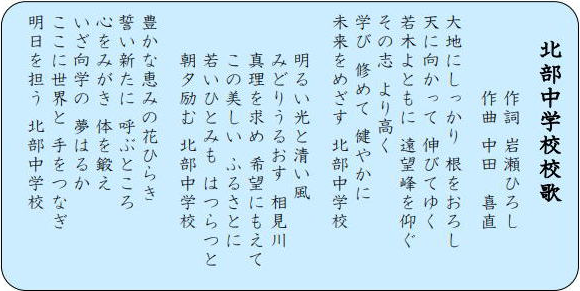 北部中学校校歌
作詞 岩瀬ひろし
作曲 中田 喜直
大地にしっかり 根をおろし
天に向かって 伸びてゆく
若木よともに 遠望峰を仰ぐ
その志 より高く
学び 修めて 健やかに
未来をめざす 北部中学校
明るい光と清い風
みどりうるおす 相見川
真理を求め 希望にもえて
この美しい ふるさとに
若いひとみも はつらつと
朝夕励む 北部中学校
豊かな恵みの花ひらき
誓い新たに 呼ぶところ
心をみがき 体を鍛え
いざ向学の 夢はるか
ここに世界と 手をつなぎ
明日を担う 北部中学校